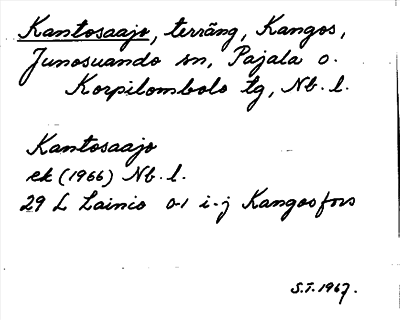 Kantosaajo, terräng, Kangos,
Junosuando sn, Pajala o.
Korpilombolo tg, Nb. l.
Kantosaajo
ek (1966) Nb. l.
29 L Lainio 0-1 i-j Kangosfors
S.T. 1967.